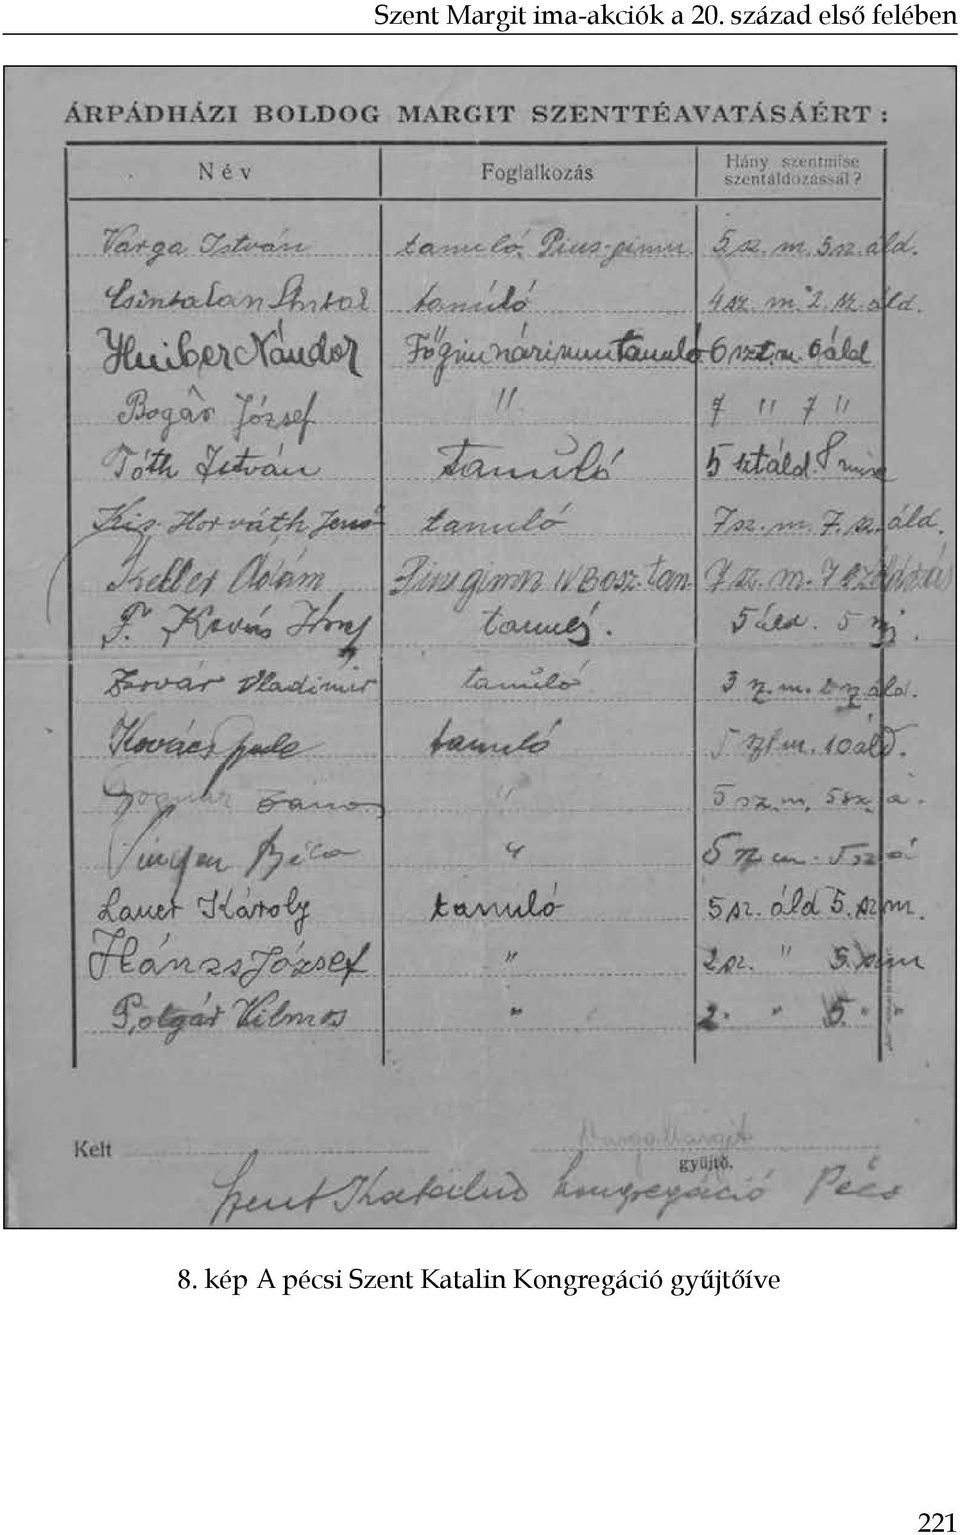 Szent Margit ima-akciók a 20. század első felében
ÁRPÁDHÁZI BOLDOG MARGIT SZENTTÉAVATÁSÁÉRT :
Név Foglalkozás Hány szentmise szentáldozással?
Varga István tanuló. Pius-gimn. 5 sz. m. 5 sz. áld.
Csintalan Antal tanúló 4 sz. m. 2. sz. áld.
Huiber Nándor Főgimnáriumi tanuló 6 szt. m. 6 áld
Bogár József " 7 " 7 "
Tóth István tanúló 5 sztáld. 8 mise
Kis Horváth Jenő tanuló 7 sz. m. 7. sz. áld.
Keller Ádám Pius gimn IV B osz. tan. 7 sz. m. 7
F. Kovás 5 áld. 5
Vladimir tanuló 3 áld.
Kovács tanuló 5 szt m. 10 áld.
" 5 sz. m. 5 sz. á.
Béla " 5
Lauer Károly tanuló 5 sz. áld 5. szm.
Hánzs József " 2 sz. " 5.
Polgár Vilmos " 2. " 5. "
Kelt Varga Margit
gyűjtő.
Szent Katalin kongregáció Pécs
8. kép A pécsi Szent Katalin Kongregáció gyűjtőíve
221